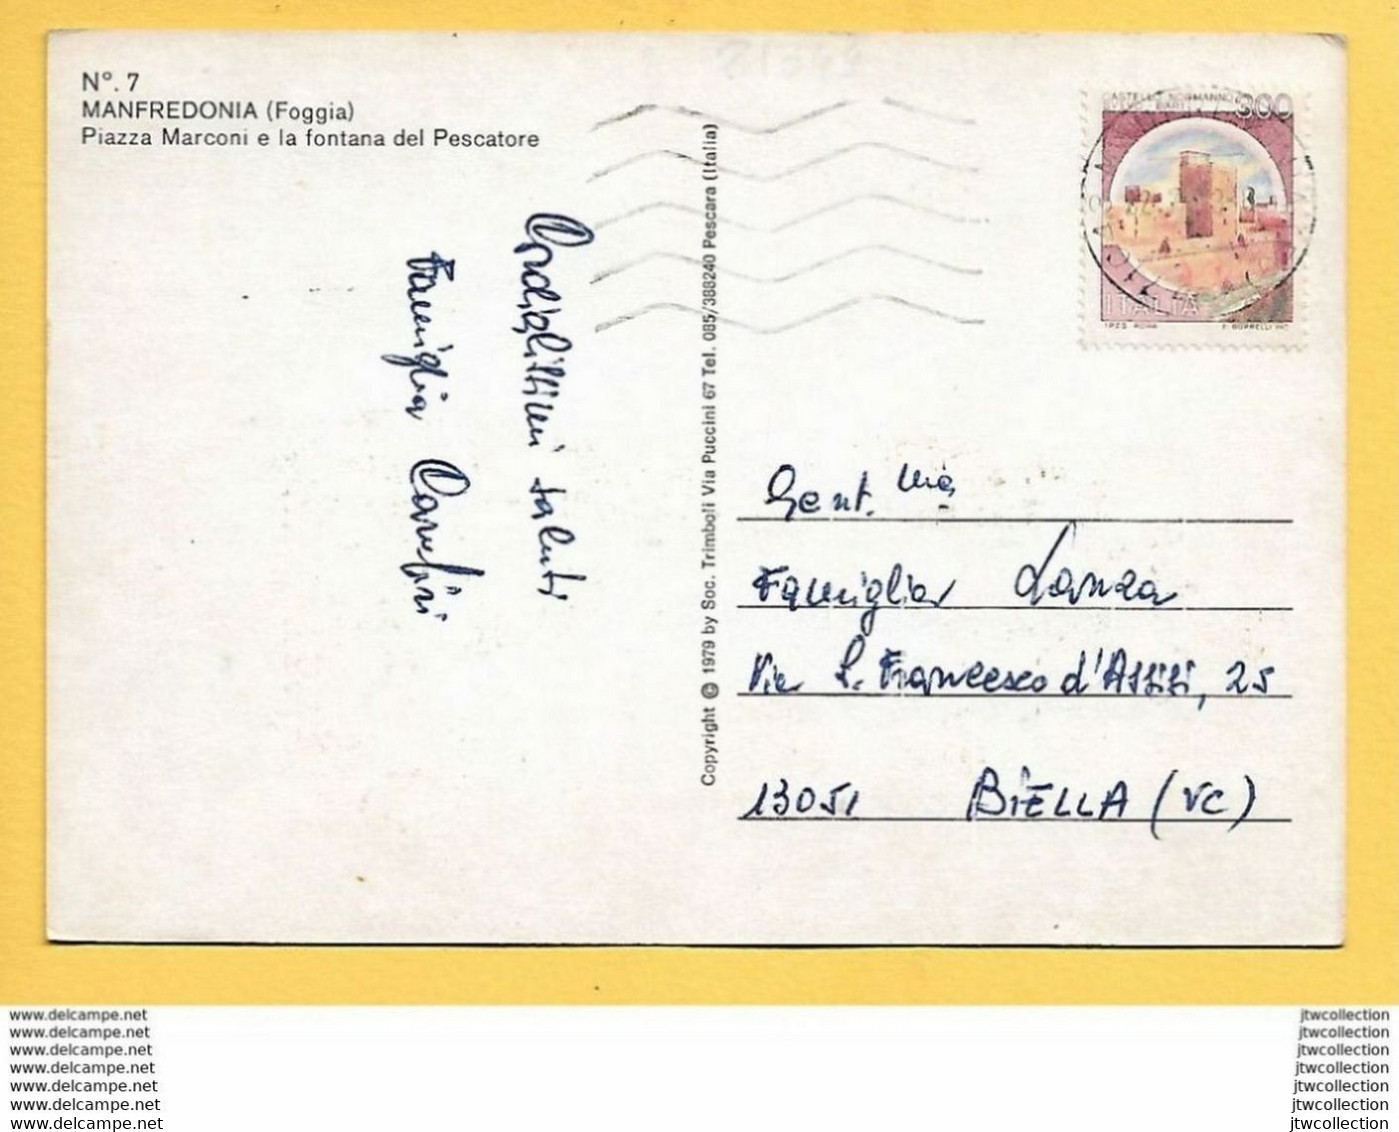 N°. 7
MANFREDONIA (Foggia)
Piazza Marconi e la fontana del Pescatore
Cordialissimi saluti
Famiglia
Copyright © 1979 by Soc. Trimboli Via Puccini 67 Tel. 085/388240 Pescara (Italia)
300
ITALIA
I.P.Z.S. ROMA
Gent.ma
Famiglia Lanza
Via S. Francesco d'Assisi, 25
13051 BIELLA (VC)
www.delcampe.net
www.delcampe.net
www.delcampe.net
www.delcampe.net
www.delcampe.net
www.delcampe.net
www.delcampe.net
jtwcollection
jtwcollection
jtwcollection
jtwcollection
jtwcollection
jtwcollection
jtwcollection